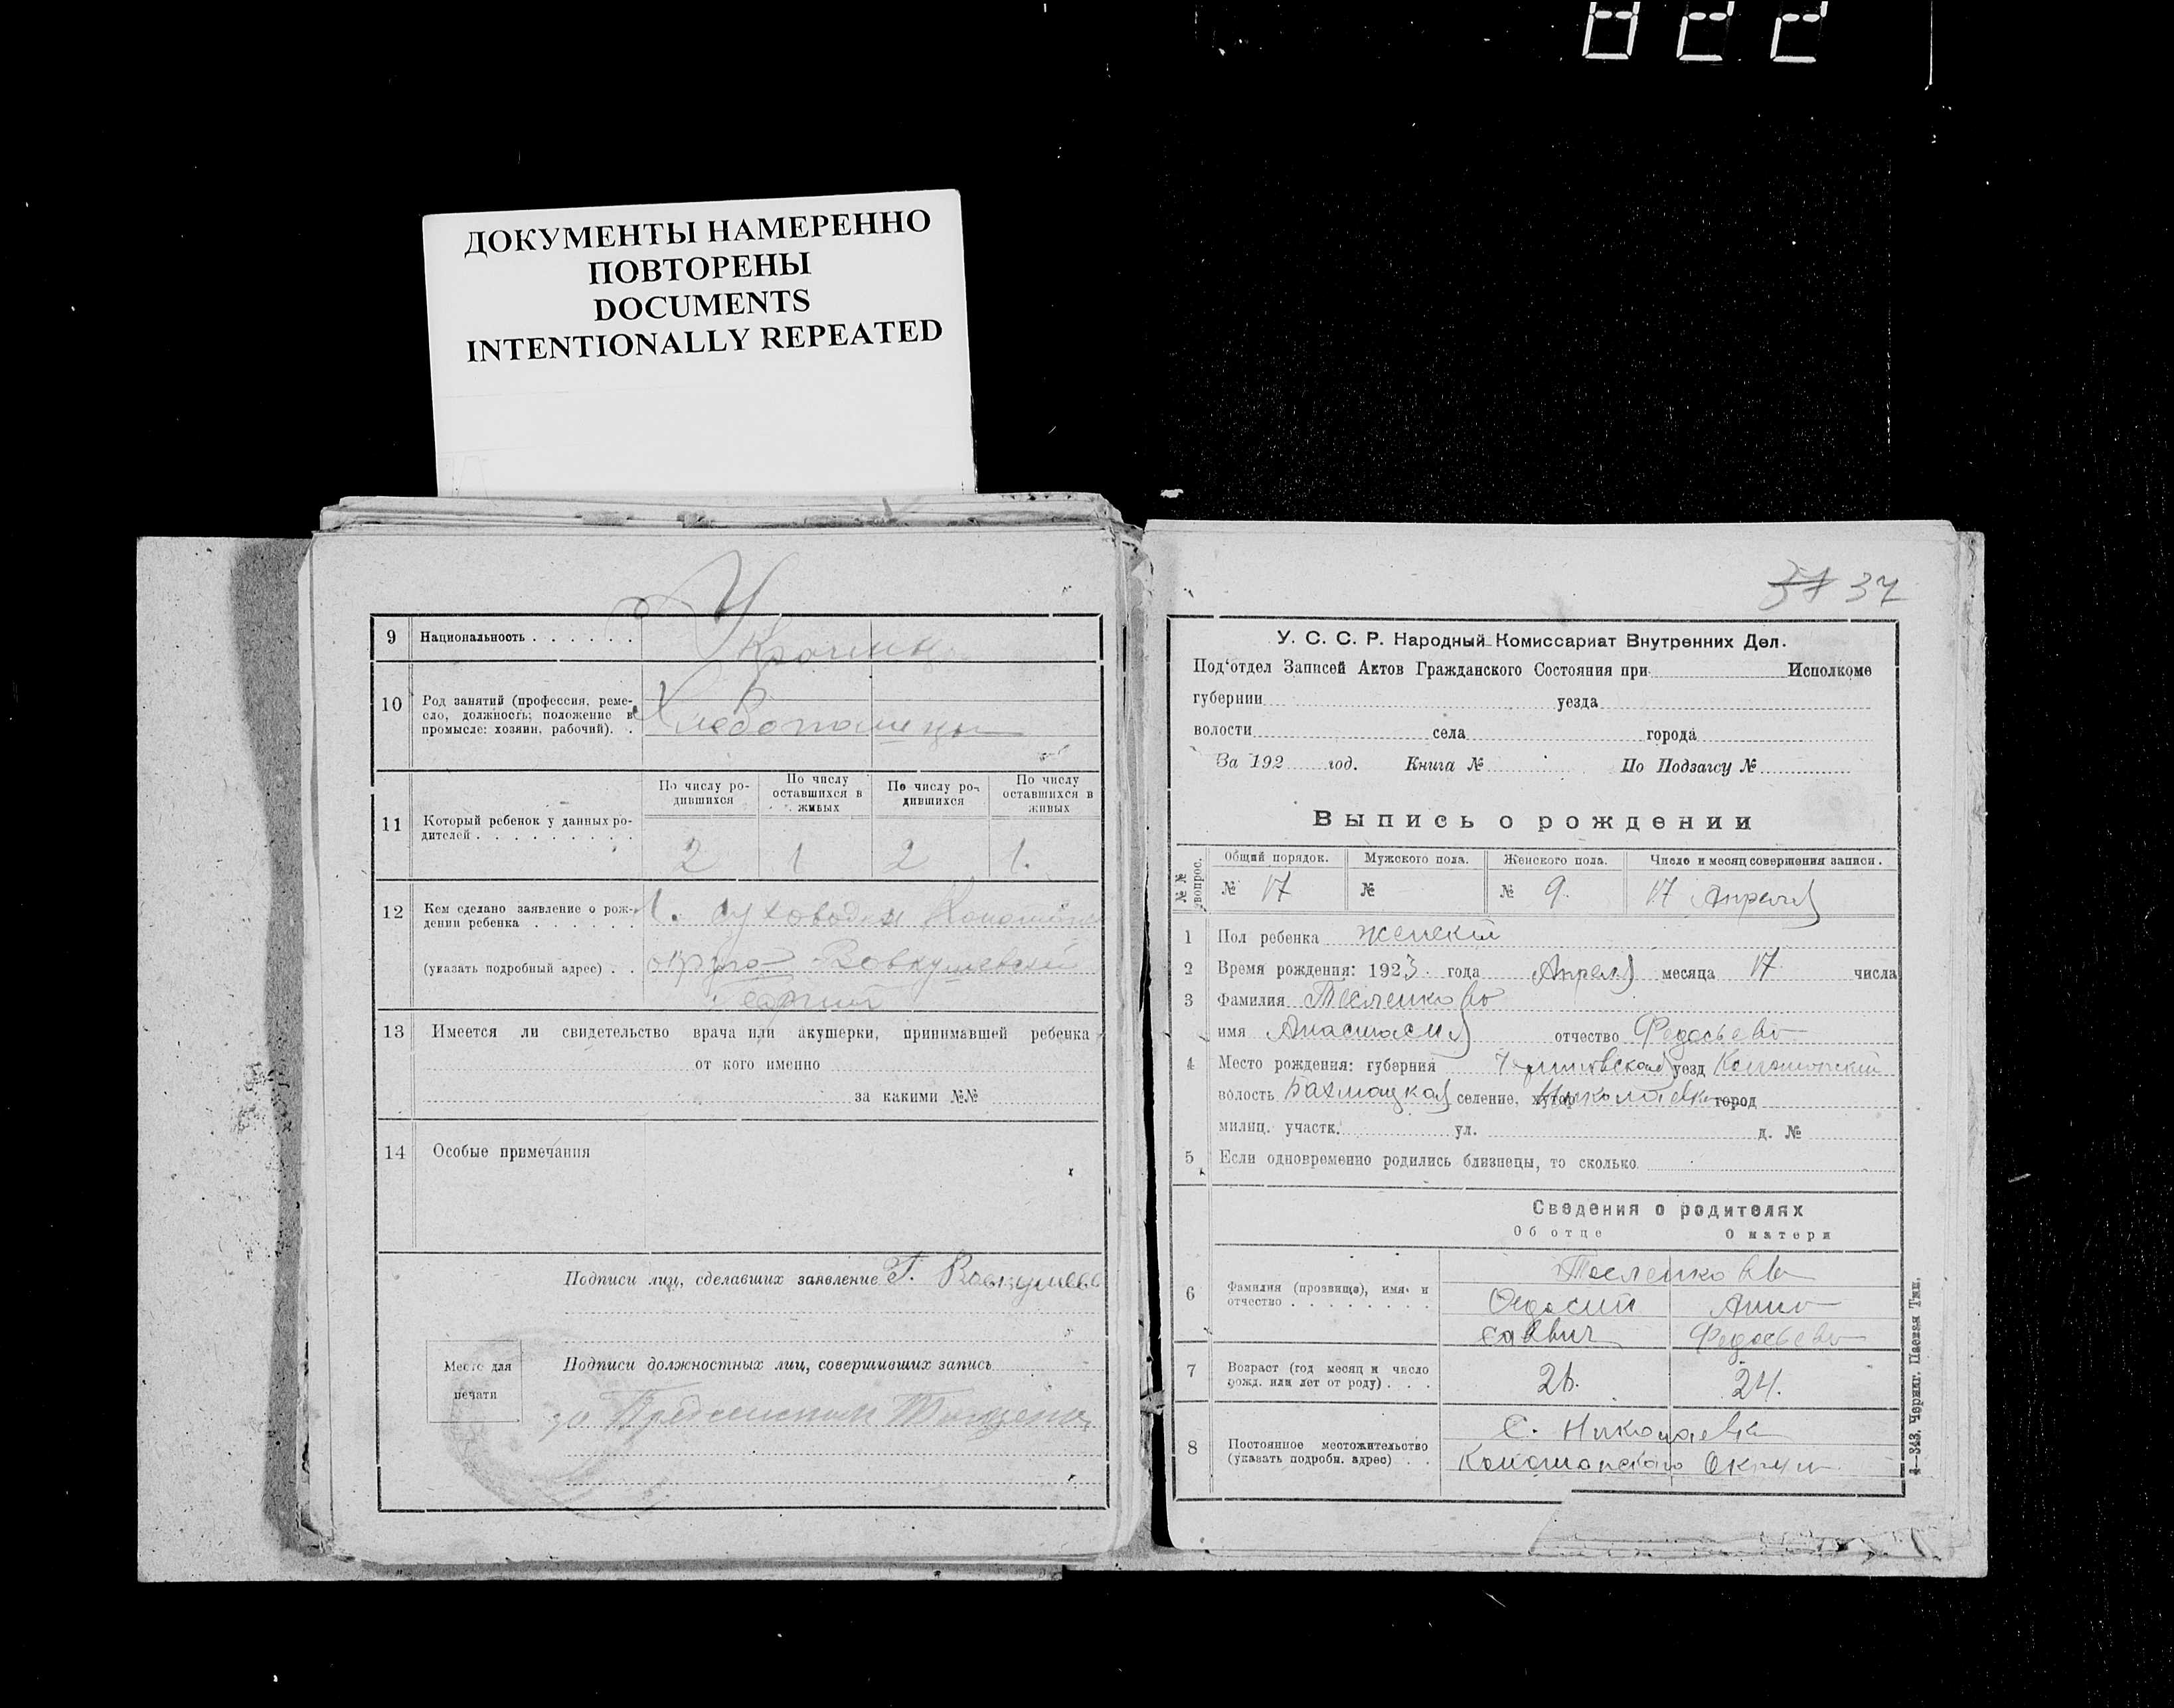 ДОКУМЕНТЫ НАМЕРЕННО
ПОВТОРЕНЫ
DOCUMENTS
INTENTIONALLY REPEATED
9 Национальность . . . . . .
10 Род занятий (профессия, реме-
сло, должность; положение в
промысле: хозяин, рабочий). .
Хлебопашцы
11 Который ребенок у данных ро-
дителей . . . . . . . . . .
По числу ро-
дившихся
По числу
оставшихся в
живых
По числу ро-
дившихся
По числу
оставшихся в
живых
2 1 2 1.
12 Кем сделано заявление о рож-
дении ребенка . . . . . .
(указать подробный адрес) . .
13 Имеется ли свидетельство врача или акушерки, принимавшей ребенка
от кого именно
за какими №№
14 Особые примечания
Подписи лиц, сделавших заявление Г.
Место для
печати
Подписи должностных лиц, совершивших запись
37 37
У. С. С. Р. Народный Комиссариат Внутренних Дел.
Под‘отдел Записей Актов Гражданского Состояния при Исполкоме
губернии уезда
волости села города
За 192 год. Книга № По Подзагсу №
Выпись о рождении
№ № вопрос.
Общий порядок. Мужского пола. Женского пола. Число и месяц совершения записи.
№ 17 № № 9. 17 Апреля
1 Пол ребенка женский
2 Время рождения: 1923 года Апреля месяца 17 числа
3 Фамилия Тесленкова
имя Анастасия отчество Федосьева
4 Место рождения: губерния Черниговская уезд Конотопский
волость Бахмацкая селение, хутор Николаевка город
милиц. участк. ул. д. №
5 Если одновременно родились близнецы, то сколько
Сведения о родителях
Об отце О матери
6 Фамилия (прозвище), имя и
отчество . . . . . . . .
Тесленкова
Федосий Анна
Саввич Федосьева
7 Возраст (год месяц и число
рожд. или лет от роду) . . .
26. 24.
8 Постоянное местожительство
(указать подробн. адрес) . .
С. Николаевка
Конотопского Округа
4—343. Черниг. Паевая Тип.